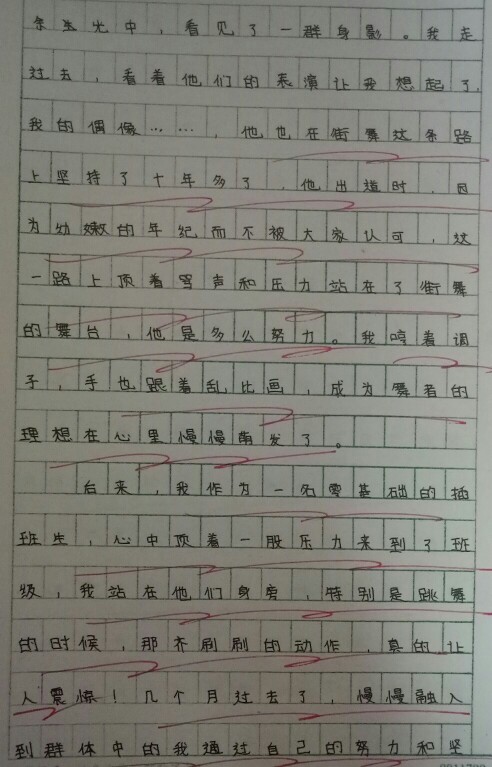 余生光中，看见了一群身影。我走
过去，看着他们的表演让我想起了，
我的偶像……，他也在街舞这条路
上坚持了十年多了，他出道时，因
为幼嫩的年纪而不被大家认可，这
一路上顶着骂声和压力站在了街舞
的舞台，他是多么努力。我哼着调
子，手也跟着乱比画，成为舞者的
理想在心里慢慢萌发了。
后来，我作为一名零基础的插
班生，心中顶着一股压力来到了班
级，我站在他们身旁，特别是跳舞
的时候，那齐刷刷的动作，真的让
人震惊！几个月过去了，慢慢融入
到群体中的我通过自己的努力和坚